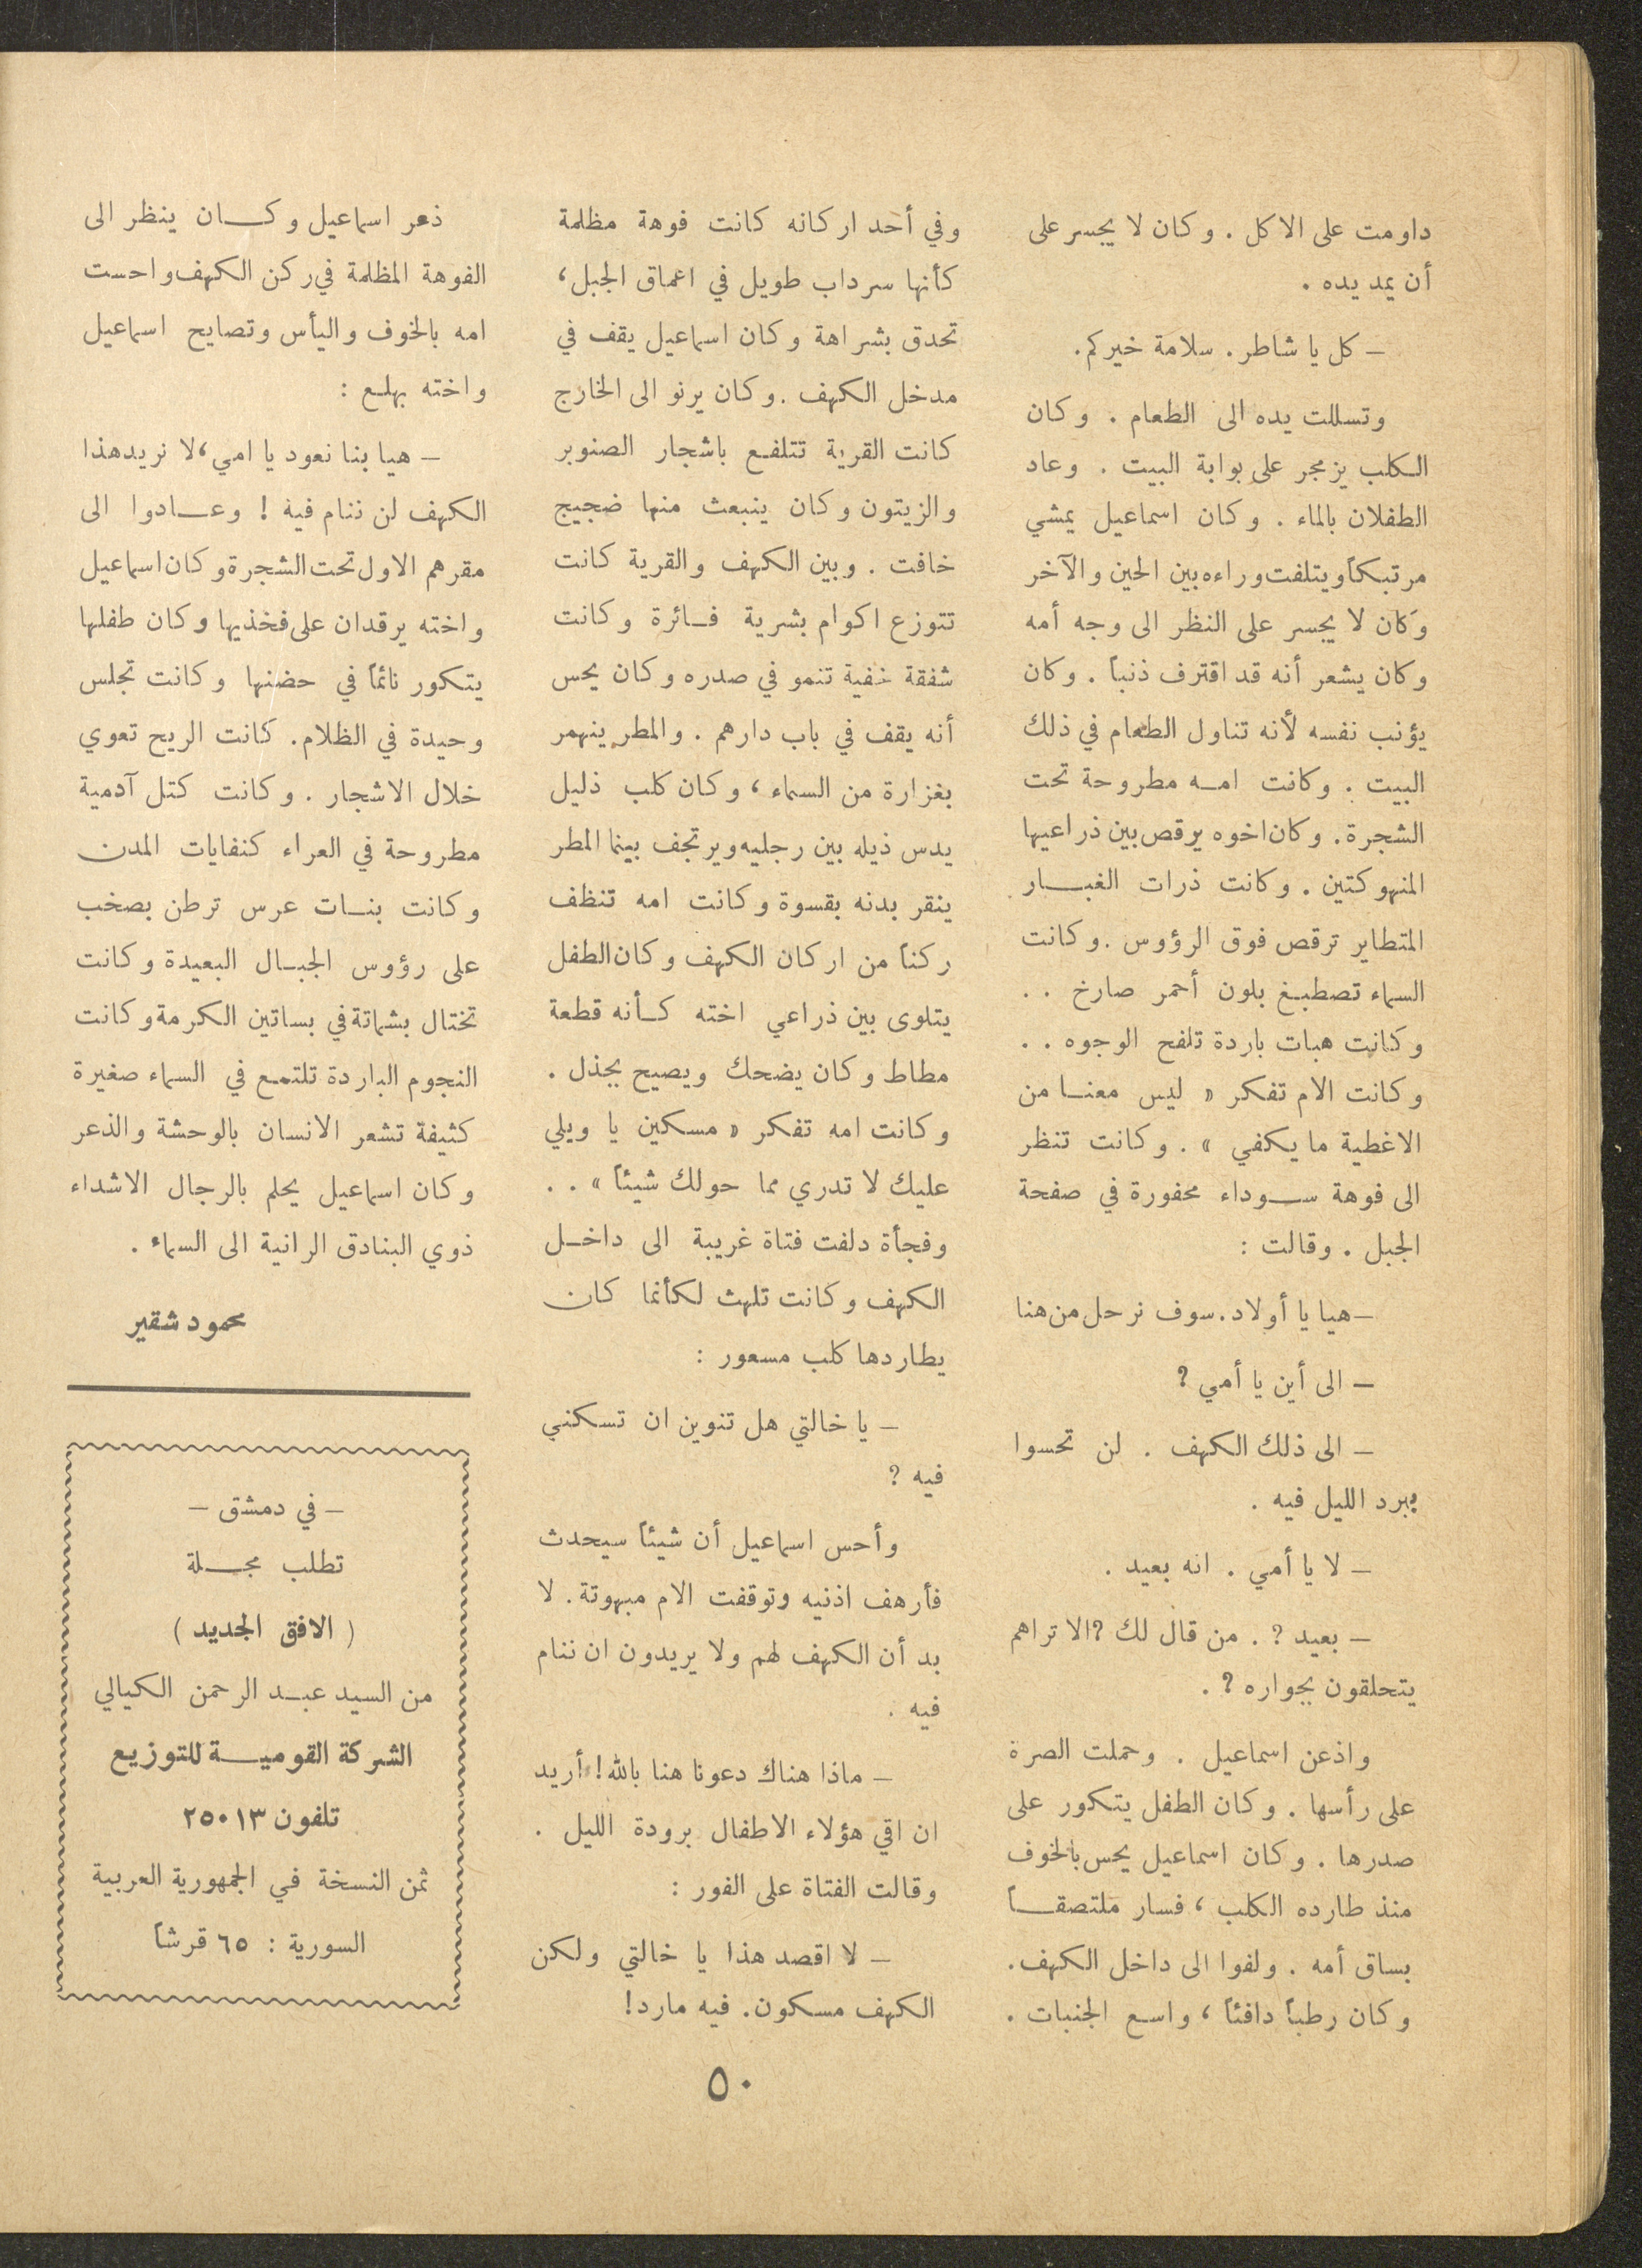 داومت على الاكل . وكان لا يجسر على
أن يمد يده .
— كل يا شاطر . سلامة خيركم .
وتسللت يده الى الطعام . وكان
الكلب يزمجر على بوابة البيت . وعاد
الطفلان بالماء . وكان اسماعيل يمشي
مرتبكاً ويتلفت وراءه بين الحين والآخر
وكان لا يجسر على النظر الى وجه أمه
وكان يشعر أنه قد اقترف ذنباً . وكان
يؤنب نفسه لأنه تناول الطعام في ذلك
البيت . وكانت امه مطروحة تحت
الشجرة . وكان اخوه يرقص بين ذراعيها
المنهوكتين . وكانت ذرات الغبار
المتطاير ترقص فوق الرؤوس . وكانت
السماء تصطبغ بلون أحمر صارخ . .
وكانت هبات باردة تلفح الوجوه . .
وكانت الام تفكر « ليس معنا من
الاغطية ما يكفي » . وكانت تنظر
الى فوهة سوداء محفورة في صفحة
الجبل . وقالت :
— هيا يا أولاد . سوف نرحل من هنا
— الى أين يا أمي ؟
— الى ذلك الكهف . لن تحسوا
ببرد الليل فيه .
— لا يا أمي . انه بعيد .
— بعيد ؟ . من قال لك ؟ الا تراهم
يتحلقون بجواره ؟ .
واذعن اسماعيل . وحملت الصرة
على رأسها . وكان الطفل يتكور على
صدرها . وكان اسماعيل يحس بالخوف
منذ طارده الكلب ، فسار ملتصقاً
بساق أمه . ولفوا الى داخل الكهف .
وكان رطباً دافئاً ، واسع الجنبات .
وفي أحد اركانه كانت فوهة مظلمة
كأنها سرداب طويل في اعماق الجبل ،
تحدق بشراهة وكان اسماعيل يقف في
مدخل الكهف . وكان يرنو الى الخارج
كانت القرية تتلفع باشجار الصنوبر
والزيتون وكان ينبعث منها ضجيج
خافت . وبين الكهف والقرية كانت
تتوزع اكوام بشرية فائرة وكانت
شفقة خفية تنمو في صدره وكان يحس
أنه يقف في باب دارهم . والمطر ينهمر
بغزارة من السماء ، وكان كلب ذليل
يدس ذيله بين رجليه ويرتجف بينما المطر
ينقر بدنه بقسوة وكانت امه تنظف
ركناً من اركان الكهف وكان الطفل
يتلوى بين ذراعي اخته كأنه قطعة
مطاط وكان يضحك ويصيح بجذل .
وكانت امه تفكر « مسكين يا ويلي
عليك لا تدري مما حولك شيئاً » . .
وفجأة دلفت فتاة غريبة الى داخل
الكهف وكانت تلهث لكأنما كان
يطاردها كلب مسعور :
— يا خالتي هل تنوين ان تسكني
فيه ؟
وأحس اسماعيل أن شيئاً سيحدث
فأرهف اذنيه وتوقفت الام مبهوتة . لا
بد أن الكهف لهم ولا يريدون ان ننام
فيه .
— ماذا هناك دعونا هنا بالله ! أريد
ان اقي هؤلاء الاطفال برودة الليل .
وقالت الفتاة على الفور :
— لا اقصد هذا يا خالتي ولكن
الكهف مسكون . فيه مارد !
ذعر اسماعيل وكان ينظر الى
الفوهة المظلمة في ركن الكهف واحست
امه بالخوف واليأس وتصايح اسماعيل
واخته بهلع :
— هيا بنا نعود يا امي ، لا نريد هذا
الكهف لن ننام فيه ! وعادوا الى
مقرهم الاول تحت الشجرة وكان اسماعيل
واخته يرقدان على فخذيها وكان طفلها
يتكور نائماً في حضنها وكانت تجلس
وحيدة في الظلام . كانت الريح تعوي
خلال الاشجار . وكانت كتل آدمية
مطروحة في العراء كنفايات المدن
وكانت بنات عرس ترطن بصخب
على رؤوس الجبال البعيدة وكانت
تختال بشماتة في بساتين الكرمة وكانت
النجوم الباردة تلتمع في السماء صغيرة
كثيفة تشعر الانسان بالوحشة والذعر
وكان اسماعيل يحلم بالرجال الاشداء
ذوي البنادق الرانية الى السماء .
محمود شقير
— في دمشق —
تطلب مجلة
( الافق الجديد )
من السيد عبد الرحمن الكيالي
الشركة القومية للتوزيع
تلفون ٢٥٠١٣
ثمن النسخة في الجمهورية العربية
السورية : ٦٥ قرشاً
٥٠